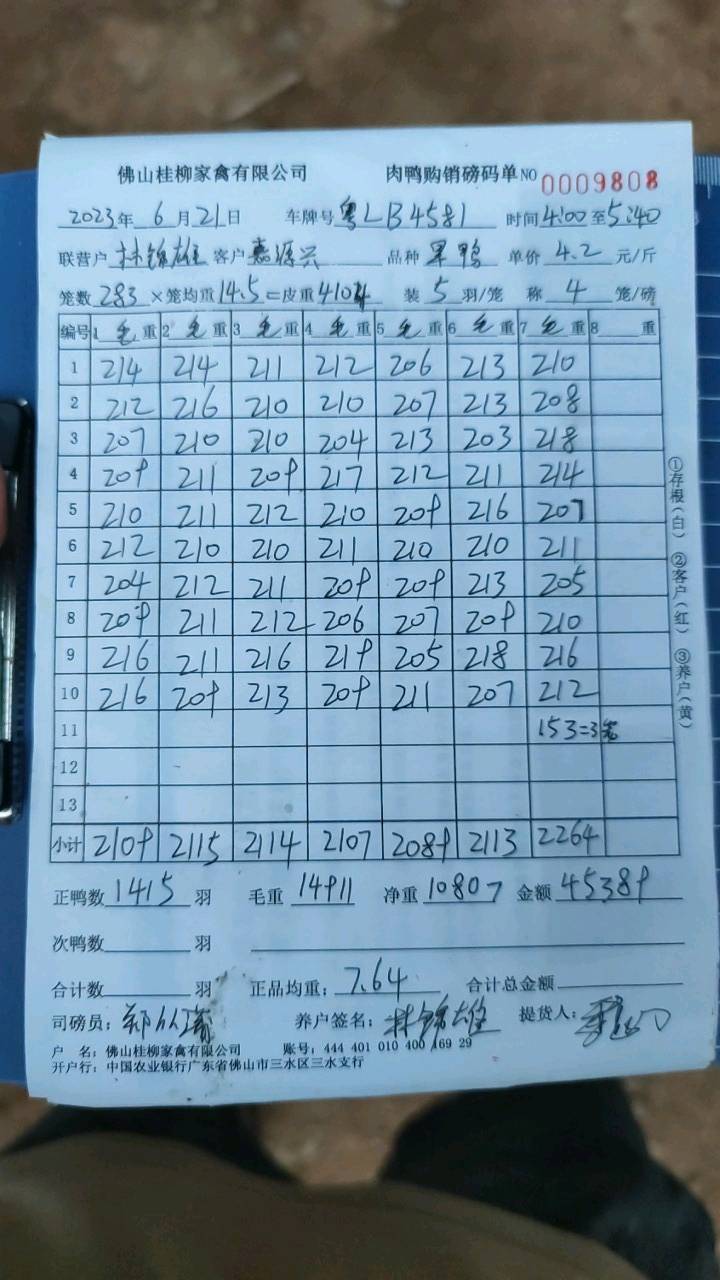 佛山桂柳家禽有限公司 肉鸭购销磅码单NO 0009808
2023年 6月21日 车牌号粤LB4581 时间4:00至5:40
联营户林锦雄 客户嘉源兴 品种果鸭 单价4.2元/斤
笼数283×笼均重14.5=皮重4104 装5羽/笼 称4笼/磅
编号 1毛重 2毛重 3毛重 4毛重 5毛重 6毛重 7毛重 8 重
1 214 214 211 212 206 213 210
2 212 216 210 210 207 213 208
3 207 210 210 204 213 203 218
4 209 211 209 217 212 211 214
5 210 211 212 210 209 216 207
6 212 210 210 211 210 210 211
7 204 212 211 209 209 213 205
8 209 211 212 206 207 209 210
9 216 211 216 219 205 218 216
10 216 209 213 209 211 207 212
11 153=3笼
12
13
小计 2109 2115 2114 2107 2089 2113 2264
正鸭数1415羽 毛重14911 净重10807 金额45389
次鸭数 羽
合计数 羽 正品均重:7.64 合计总金额
司磅员: 养户签名:林锦雄 提货人:
户 名:佛山桂柳家禽有限公司 账号:444 401 010 400 169 29
开户行:中国农业银行广东省佛山市三水区三水支行
①存根(白) ②客户(红) ③养户(黄)